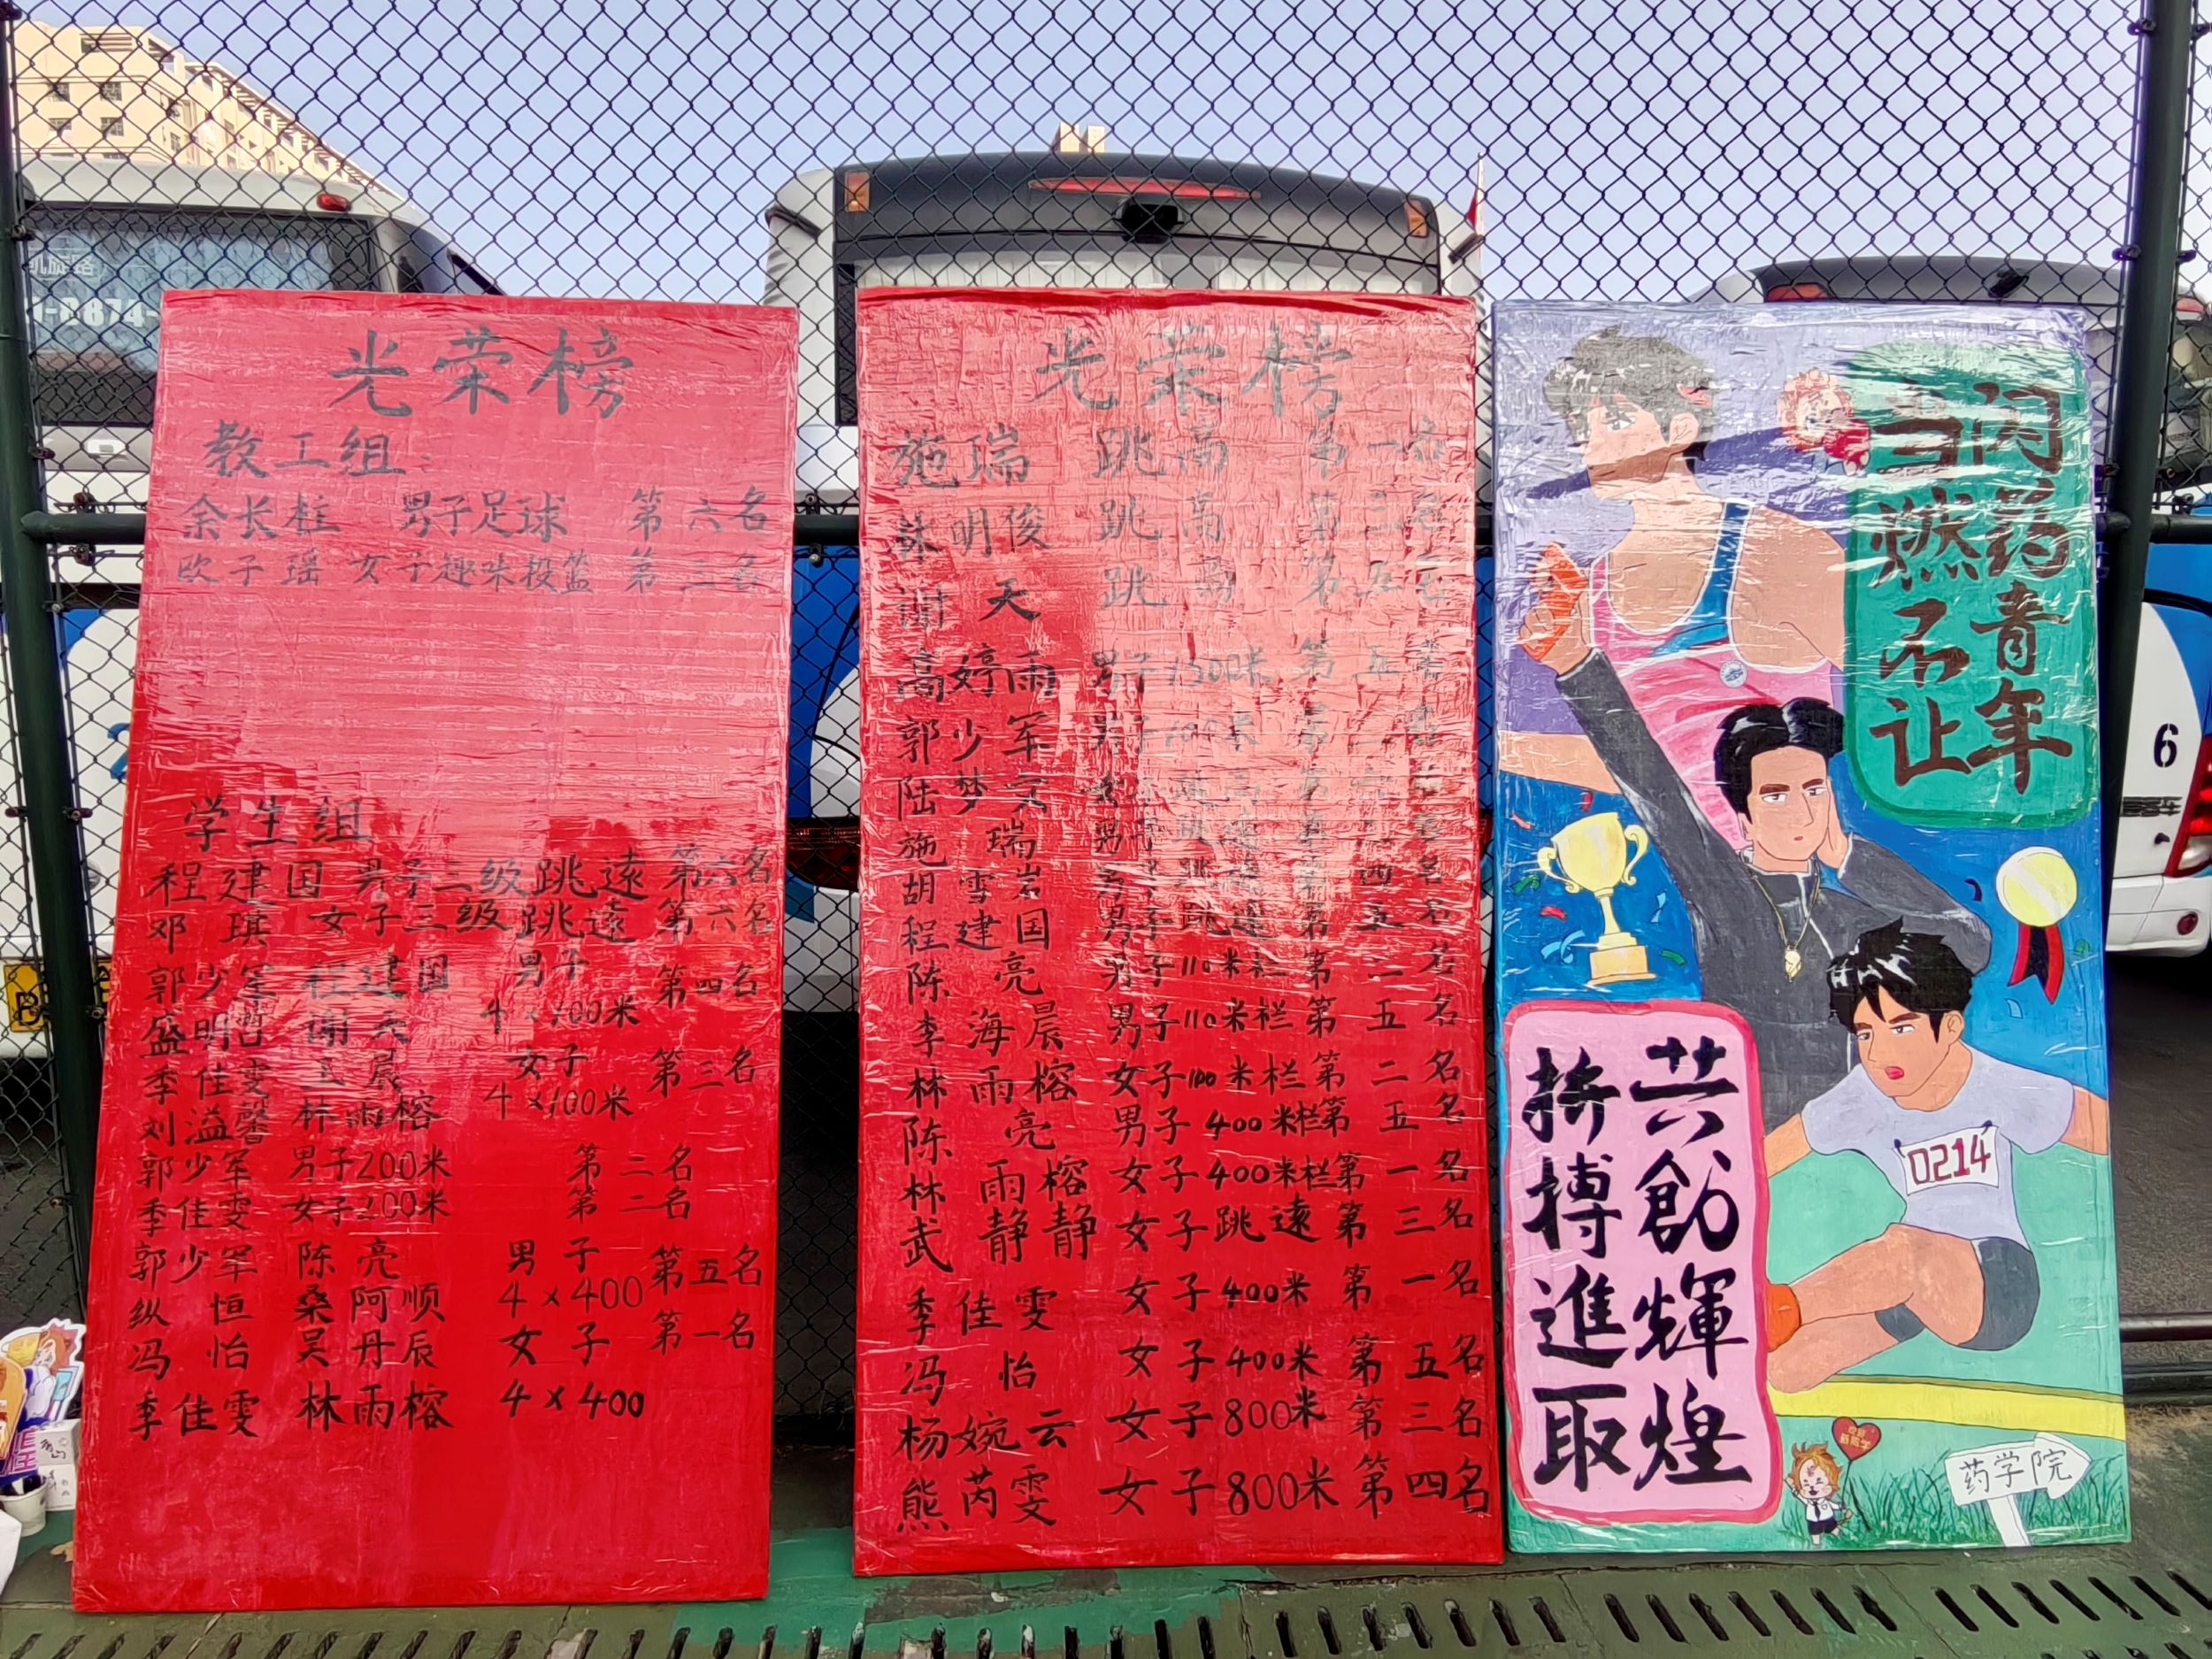 光荣榜
教工组:
余长柱 男子足球 第六名
欧子瑶 女子趣味投篮 第三名
学生组
程建国 男子三级跳遠 第六名
邓琪 女子三级跳遠 第六名
郭少军 程建国 男子 第四名
盛明哲 谢天 4×100米
季佳雯 晨 女子 第三名
刘溢馨 林雨榕 4×100米
郭少军 男子200米 第二名
季佳雯 女子200米 第二名
郭少军 陈亮 男子 第五名
纵恒 桑阿顺 4×400
冯怡 吴丹辰 女子 第一名
季佳雯 林雨榕 4×400
光荣榜
施瑞 跳高 第一名
明俊 跳高 第三名
谢天 跳高 第五名
高婷雨 男子1500米 第五名
郭少军 男子100米 第
陆梦 女子
施瑞 男子
胡雪岩 男子 四名
程建国 男子跳遠 第五名
陈亮 男子110米栏 第二名
李海晨 男子110米栏 第五名
林雨榕 女子100米栏 第二名
陈亮 男子400米栏 第五名
林雨榕 女子400米栏 第一名
武静静 女子跳遠 第三名
季佳雯 女子400米 第一名
冯怡 女子400米 第五名
杨婉云 女子800米 第三名
熊芮雯 女子800米 第四名
闪药青年
当燃不让
0214
共創輝煌
拚搏進取
药学院
6